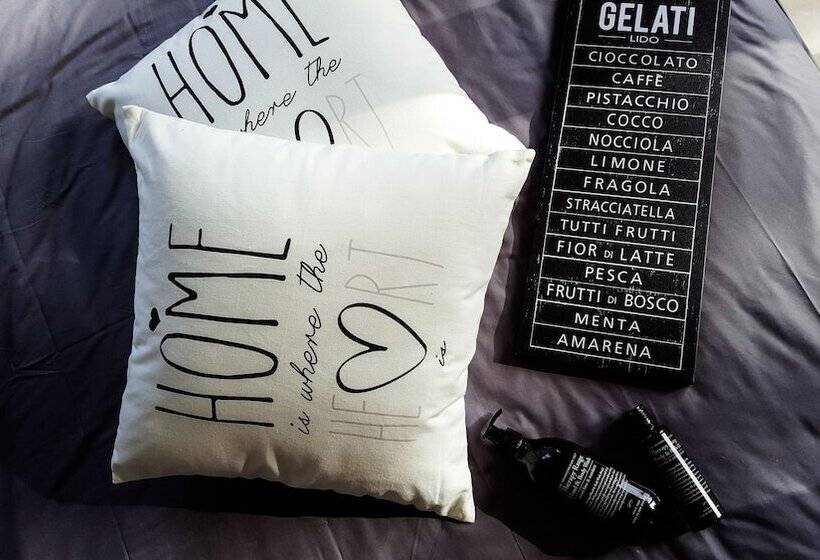 HOME
where the
RT
HOME
is where the
HERT
is
GELATI
LIDO
CIOCCOLATO
CAFFÈ
PISTACCHIO
COCCO
NOCCIOLA
LIMONE
FRAGOLA
STRACCIATELLA
TUTTI FRUTTI
FIOR DI LATTE
PESCA
FRUTTI DI BOSCO
MENTA
AMARENA